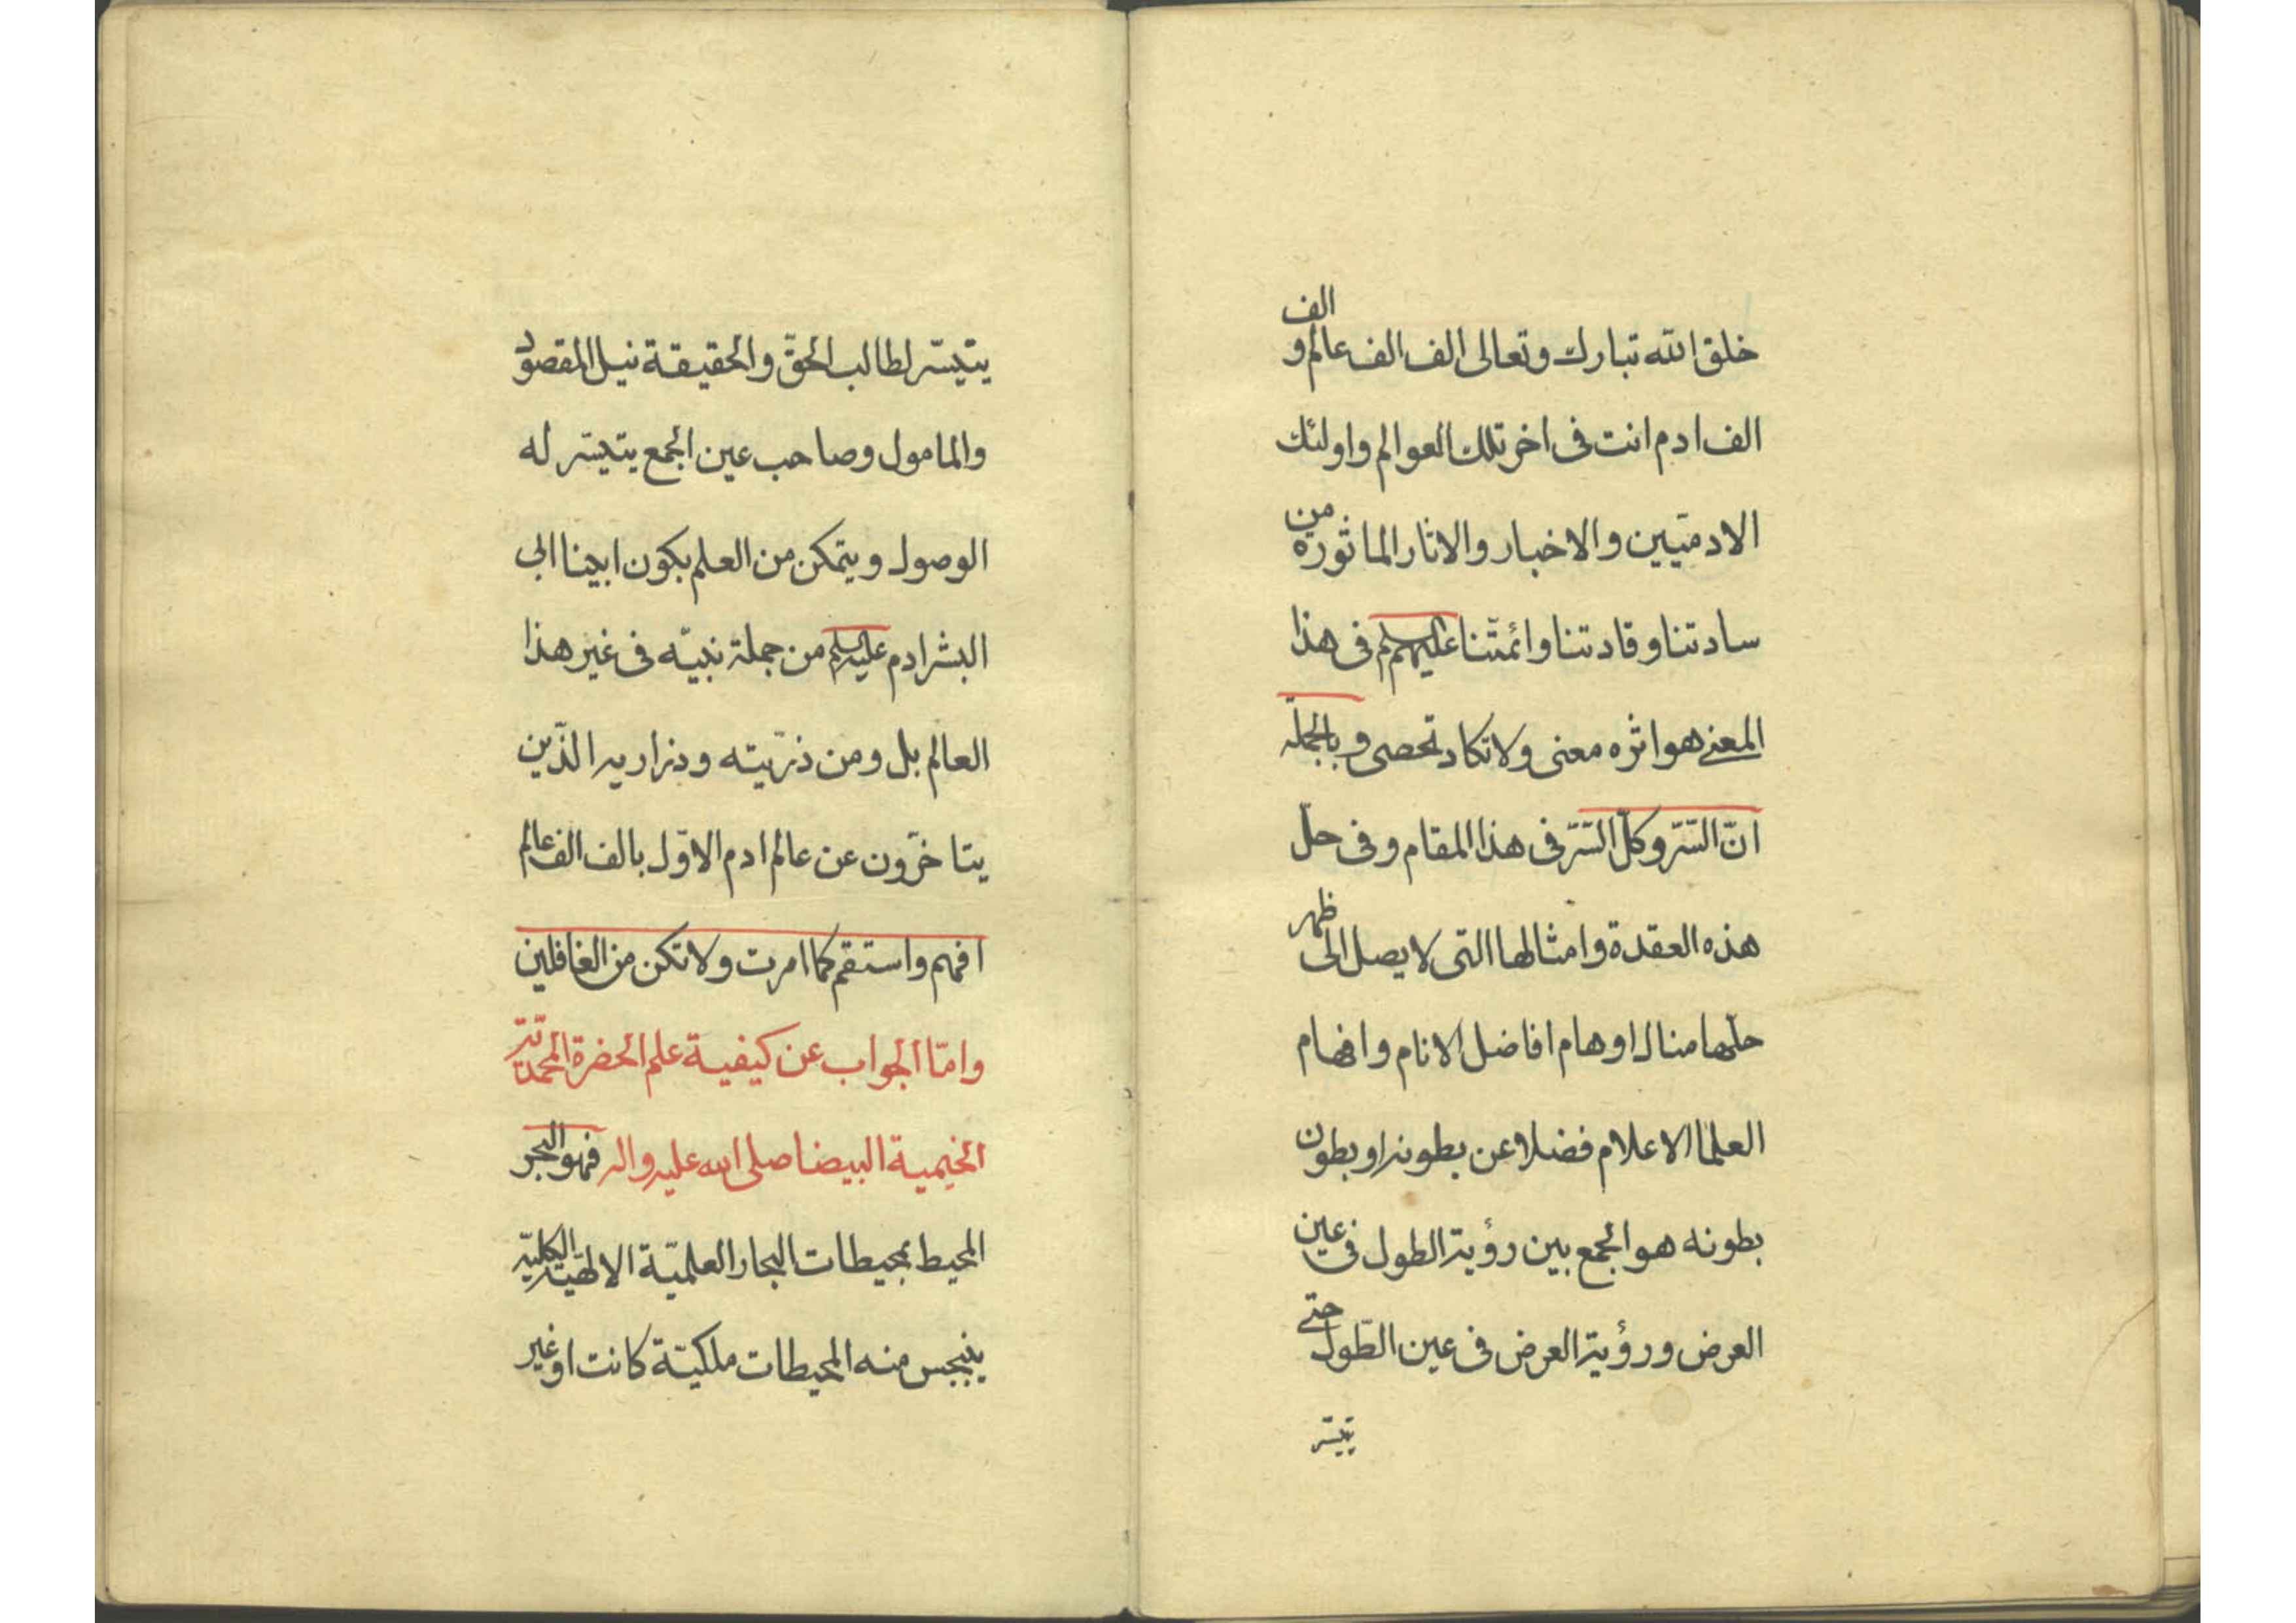 خلق الله تبارك وتعالى الف الف عالم و الف
الف ادم انت فى اخر تلك العوالم واولئك
الادميّين والاخبار والاثار الماثورة من
سادتنا وقادتنا وائمّتنا عليهم السلم فى هذا
المعنى هو اثره معنى ولا تكاد تحصى و بالجملة
انّ السّرّ وكلّ السّرّ فى هذا المقام وفى حلّ
هذه العقدة وامثالها التى لا يصل الى ظهر
حلّها منال اوهام افاضل الانام وافهام
العلما الاعلام فضلا عن بطونه او بطون
بطونه هو الجمع بين رؤية الطول فى عين
العرض ورؤية العرض فى عين الطّول حتى
يتيسّر
يتيسّر لطالب الحقّ والحقيقة نيل المقصود
والمامول وصاحب عين الجمع يتيسّر له
الوصول ويتمكن من العلم بكون ابينا ابى
البشر ادم عليه السلم من جملة نبيّه فى غير هذا
العالم بل ومن ذرّيته وذراريه الذّين
يتاخّرون عن عالم ادم الاوّل بالف الف عالم
افهم واستقم كما امرت ولا تكن من الغافلين
وامّا الجواب عن كيفية علم الحضرة المحمديّة
الختمية البيضا صلى الله عليه واله فهو البحر
المحيط بمحيطات البحار العلميّة الالهيّة الكليّة
ينبجس منه المحيطات ملكيّة كانت او غير